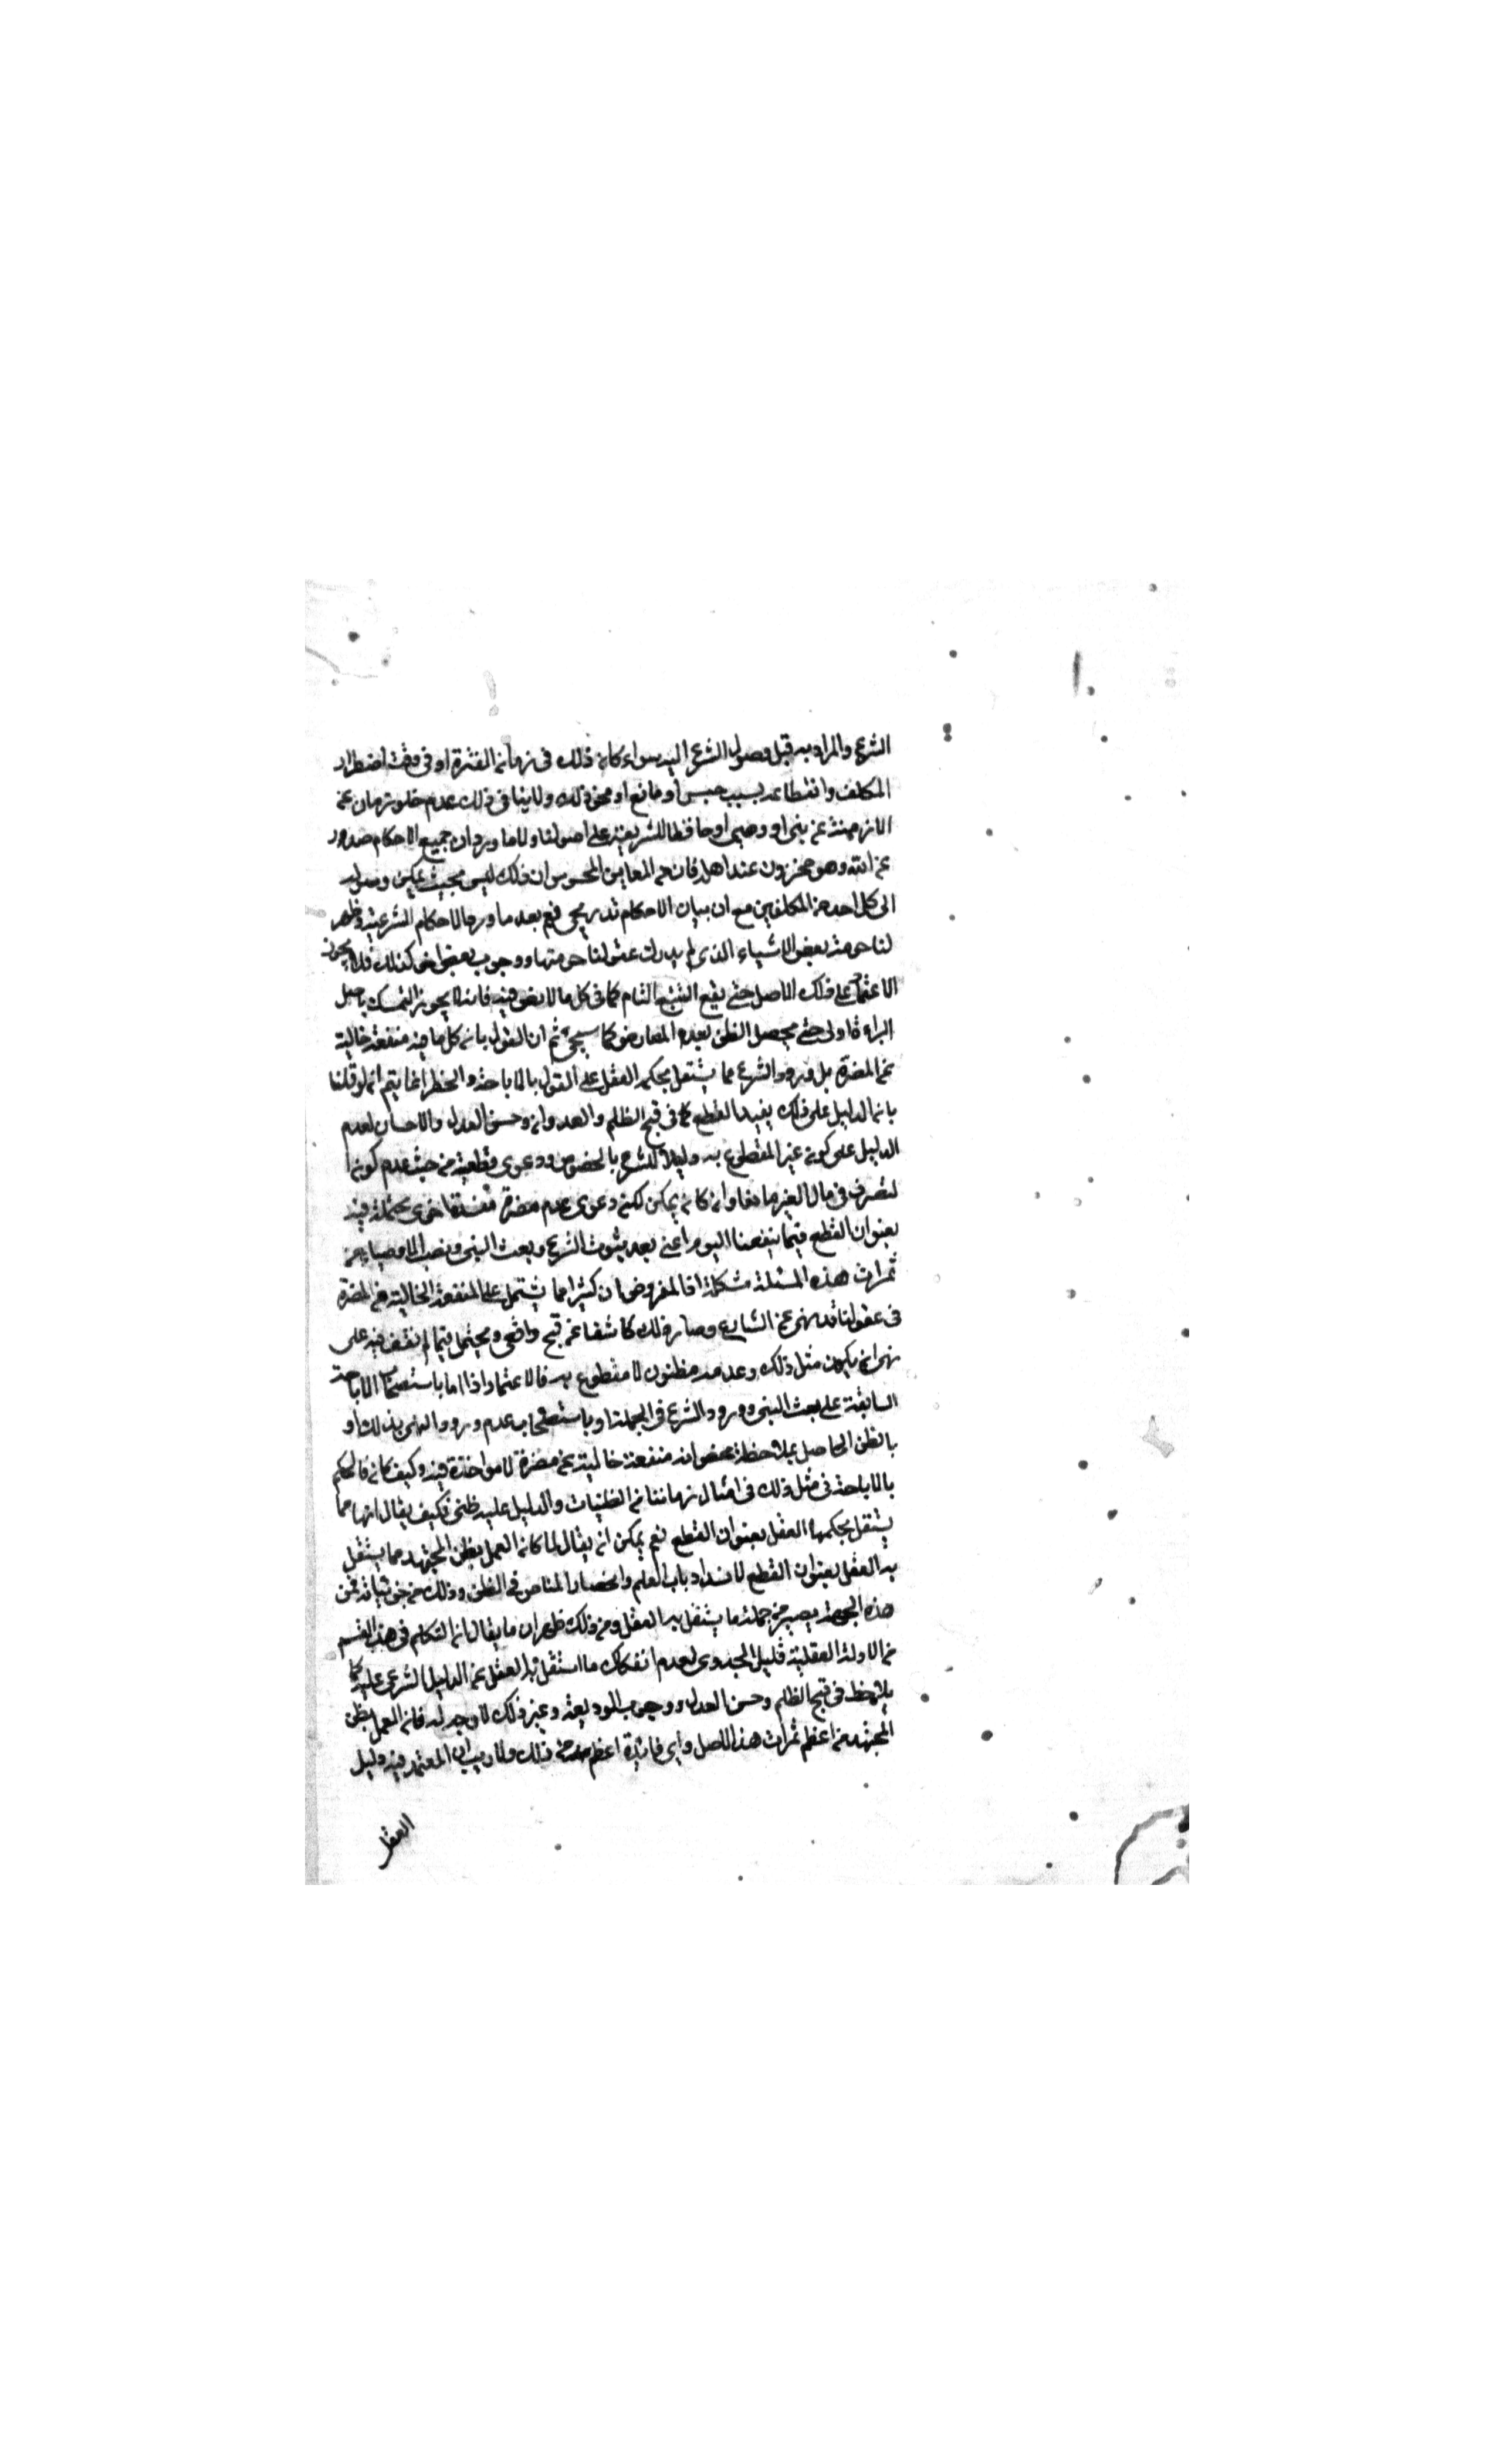 الشرع والمراد به قبل وصول الشرع اليه سواء كان ذلك في زمان الفترة او في وقت اضطرار
المكلف وانقطاعه بسبب حبس او مانع او نحو ذلك ولا ينافي ذلك عدم خلو زمان عن
الازمنة عن نبي او وصي او حافظ للشريعة على اصولنا ولا ما ورد ان جميع الاحكام صدور
عن الله وهو مخزون عند اهله فان من المعاين المحسوس ان ذلك ليس بحيث يمكن وصوله
الى كل احد من المكلفين مع ان بيان الاحكام تدريجي نعم بعد ما ورد الاحكام الشرعية وظهر
لنا حرمة بعض الاشياء الذي لم يدرك عقولنا حرمتها ووجوب بعض اخر كذلك فلا يجوز
الاعتماد على ذلك الاصل حتى يقع التتبع التام كما في كل ما لا نص فيه فانه لا يجوز التمسك باصل
البراءة اولى حتى يحصل الظن بعدم المعارض كما سيجئ ثم ان القول بان كل ما فيه منفعة خالية
عن المضرة بل ورود الشرع مما يستقل بحكمه العقل على القول بالاباحة والحظر انما يتم ان لو قلنا
بان الدليل على ذلك يفيد القطع كما في قبح الظلم والعدوان وحسن العدل والاحسان لعدم
الدليل على كون غير المقطوع به دليلا للشرع بالخصوص ودعوى قطعية من حيث عدم كونه
لتصرف في مال الغير مانعا وان كان يمكن لكن دعوى عدم مضرة مفسدة اخرى محتملة فيه
بعنوان القطع فيما ينفعنا اليوم اعني بعد ثبوت الشرع وبعث النبي ونصب الاوصياء من
ثمرات هذه المسئلة مشكلة اذ المفروض ان كثيرا مما يشتمل على المنفعة الخالية عن المضرة
في عقولنا قد نهى عن الشارع وصار ذلك كاشفا عن قبح واقعي ويحتمل فيما لم نقف فيه على
نهي ان يكون مثل ذلك وعدمه مظنون لا مقطوع به فالاعتماد اذا اما باستصحاب الاباحة
السابقة على بعث النبي وورود الشرع في الجملة او باستصحاب عدم ورود النهي بذلك او
بالظن الحاصل بملاحظة محض انه منفعة خالية عن مضرة لا مواخذة فيه وكيف كان فالحكم
بالاباحة في مثل ذلك في امثال زماننا من الظنيات والدليل عليه ظني فكيف يقال انها مما
يستقل بحكمها العقل بعنوان القطع نعم يمكن ان يقال لما كان العمل بظن المجتهد مما يستقل
به العقل بعنوان القطع لانسداد باب العلم وانحصار المناص في الظن وذلك من جزئياته فمن
هذه الجهة يصير من جملة ما يستقل به العقل ومن ذلك ظهر ان ما يقال ان التكلم في هذا القسم
من الادلة العقلية قليل الجدوى لعدم انفكاك ما استقل به العقل عن الدليل الشرعي عليه كما
يلاحظ في قبح الظلم وحسن العدل ووجوب الوديعة وغير ذلك لا وجه له فان العمل بظن
المجتهد من اعظم ثمرات هذا الاصل واي فائدة اعظم من ذلك ولا ريب ان المعتمد فيه دليل
العقل